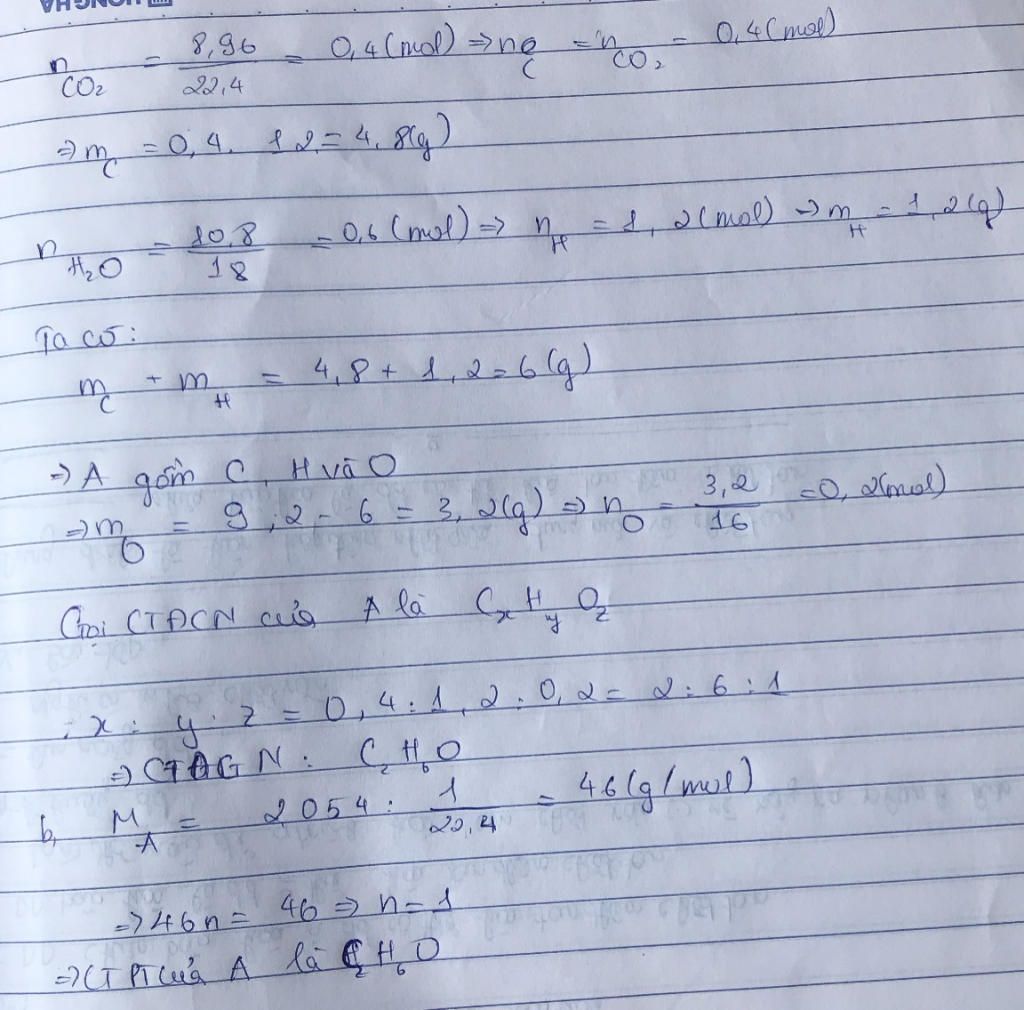 HỒNG HÀ
n_CO₂ = 8,96/22,4 = 0,4 (mol) ⇒ n_C = n_CO₂ = 0,4 (mol)
⇒ m_C = 0,4. 12 = 4,8(g)
n_H₂O = 10,8/18 = 0,6 (mol) ⇒ n_H = 1,2 (mol) ⇒ m_H = 1,2 (g)
Ta có:
m_C + m_H = 4,8 + 1,2 = 6 (g)
⇒ A gồm C, H và O
⇒ m_O = 9,2 - 6 = 3,2(g) ⇒ n_O = 3,2/16 = 0,2(mol)
Gọi CTĐGN của A là CxHyOz
: x : y : z = 0,4 : 1,2 : 0,2 = 2 : 6 : 1
⇒ CTĐGN : C₂H₆O
b, M_A = 2054 : 1/22,4 = 46 (g/mol)
⇒ 46n = 46 ⇒ n = 1
⇒ CTPT của A là C₂H₆O